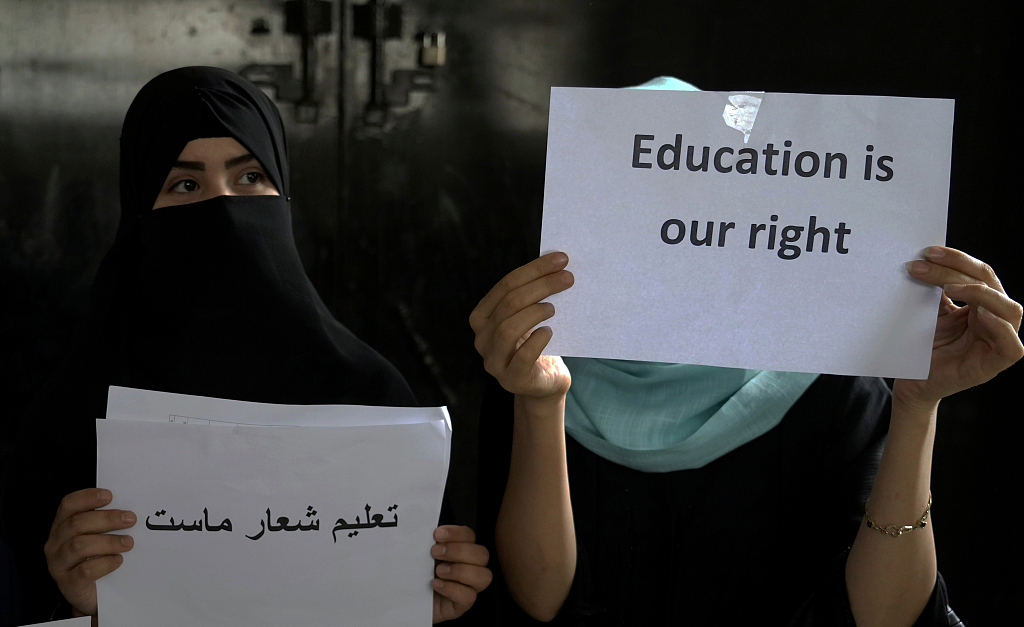 Education is
our right
تعلیم شعار ماست